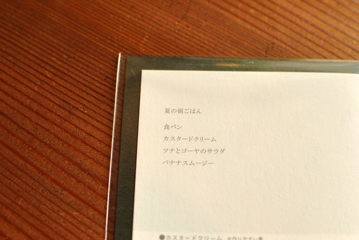 夏の朝ごはん
食パン
カスタードクリーム
ツナとゴーヤのサラダ
バナナスムージー
●カスタードクリーム